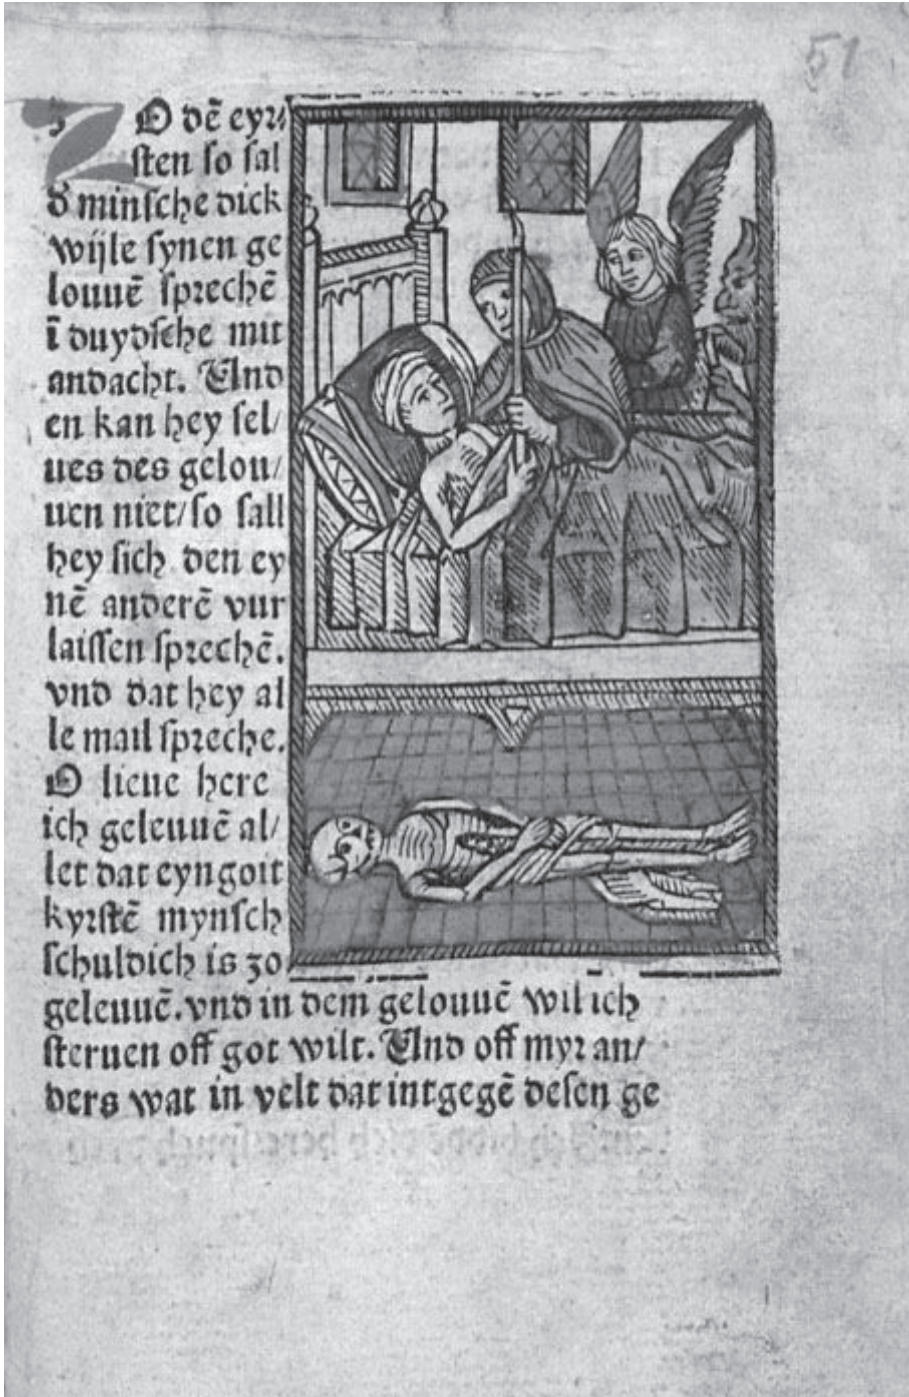 51
ZO dē eyrꝛ/
sten so sal
d̕ minsche dick
wijle synen ge
louuē sprechē
ī duydsche mit
andacht. Und
en kan hey sel/
ues des gelou/
uen niet/so sall
hey sich den ey
nē anderē vur
laissen sprechē.
vnd dat hey al
le mail spreche.
O lieue here
ich geleuuē al/
let dat eyngoit
kyrstē mynsch
schuldich is zo
geleuuē.vnd in dem gelouuē wil ich
steruen off got wilt. Und off myr an/
ders wat in velt dat intgegē desen ge